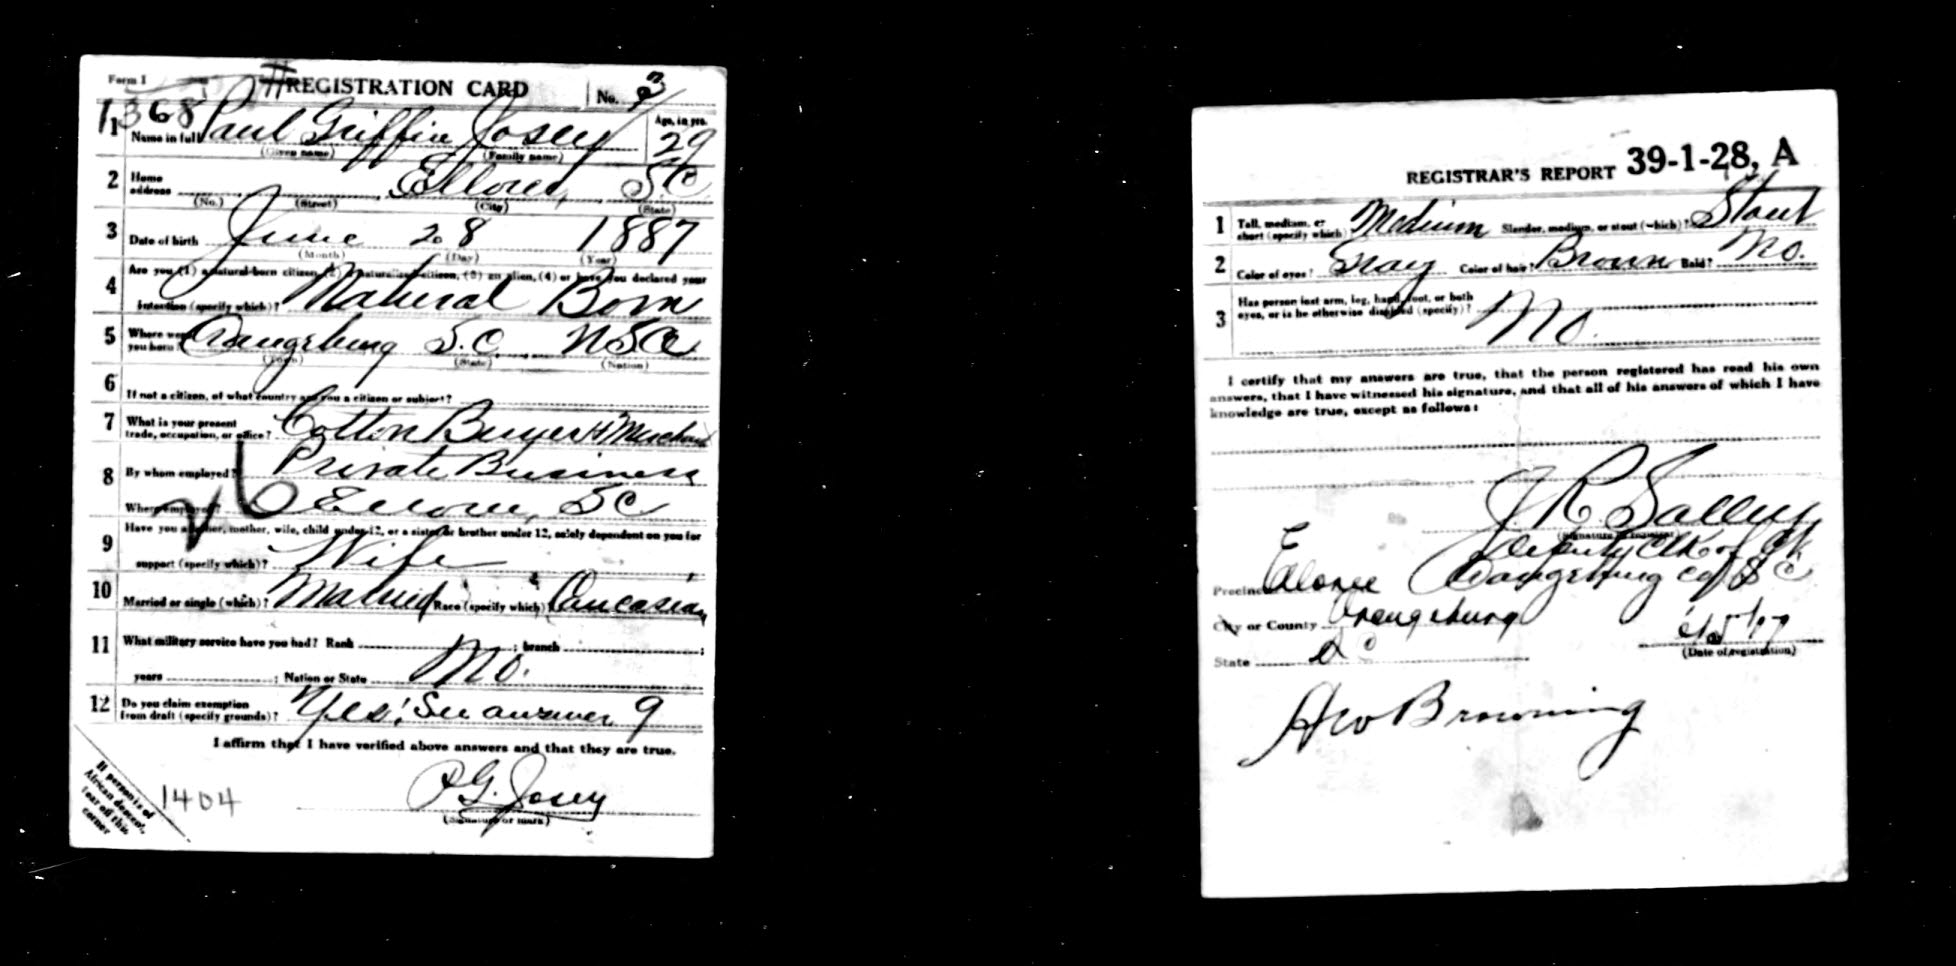 Form 1 REGISTRATION CARD No. 3
1368
1 Name in full Paul Griffin Josey Age, in yrs. 29
(Given name) (Family name)
2 Home address Elloree, S.C.
(No.) (Street) (City) (State)
3 Date of birth June 28 1887
(Month) (Day) (Year)
4 Are you (1) a natural-born citizen, (2) a naturalized citizen, (3) an alien, (4) or have you declared your
intention (specify which)? Natural Born
5 Where were you born? Orangeburg S.C. USA
(Town) (State) (Nation)
6 If not a citizen, of what country are you a citizen or subject?
7 What is your present trade, occupation, or office? Cotton Buyer & Merchant
8 By whom employed? Private Business
Where employed? Elloree, SC
9 Have you a father, mother, wife, child under 12, or a sister or brother under 12, solely dependent on you for
support (specify which)? Wife
10 Married or single (which)? Married Race (specify which)? Caucasian
11 What military service have you had? Rank ; branch ;
years ; Nation or State No.
12 Do you claim exemption from draft (specify grounds)? Yes! See answer 9
I affirm that I have verified above answers and that they are true.
P.G. Josey
(Signature or mark)
If person is of African descent, tear off this corner
1404
REGISTRAR'S REPORT 39-1-28, A
1 Tall, medium, or short (specify which)? Medium Slender, medium, or stout (which)? Stout
2 Color of eyes? Gray Color of hair? Brown Bald? No.
3 Has person lost arm, leg, hand, foot, or both eyes, or is he otherwise disabled (specify)? No.
I certify that my answers are true, that the person registered has read his own
answers, that I have witnessed his signature, and that all of his answers of which I have
knowledge are true, except as follows:
J. R. Salley
(Signature of registrar)
Deputy Clk of Ct.
Precinct Elloree Orangeburg Co. S C
City or County Orangeburg
State S C
(Date of registration)
Browning